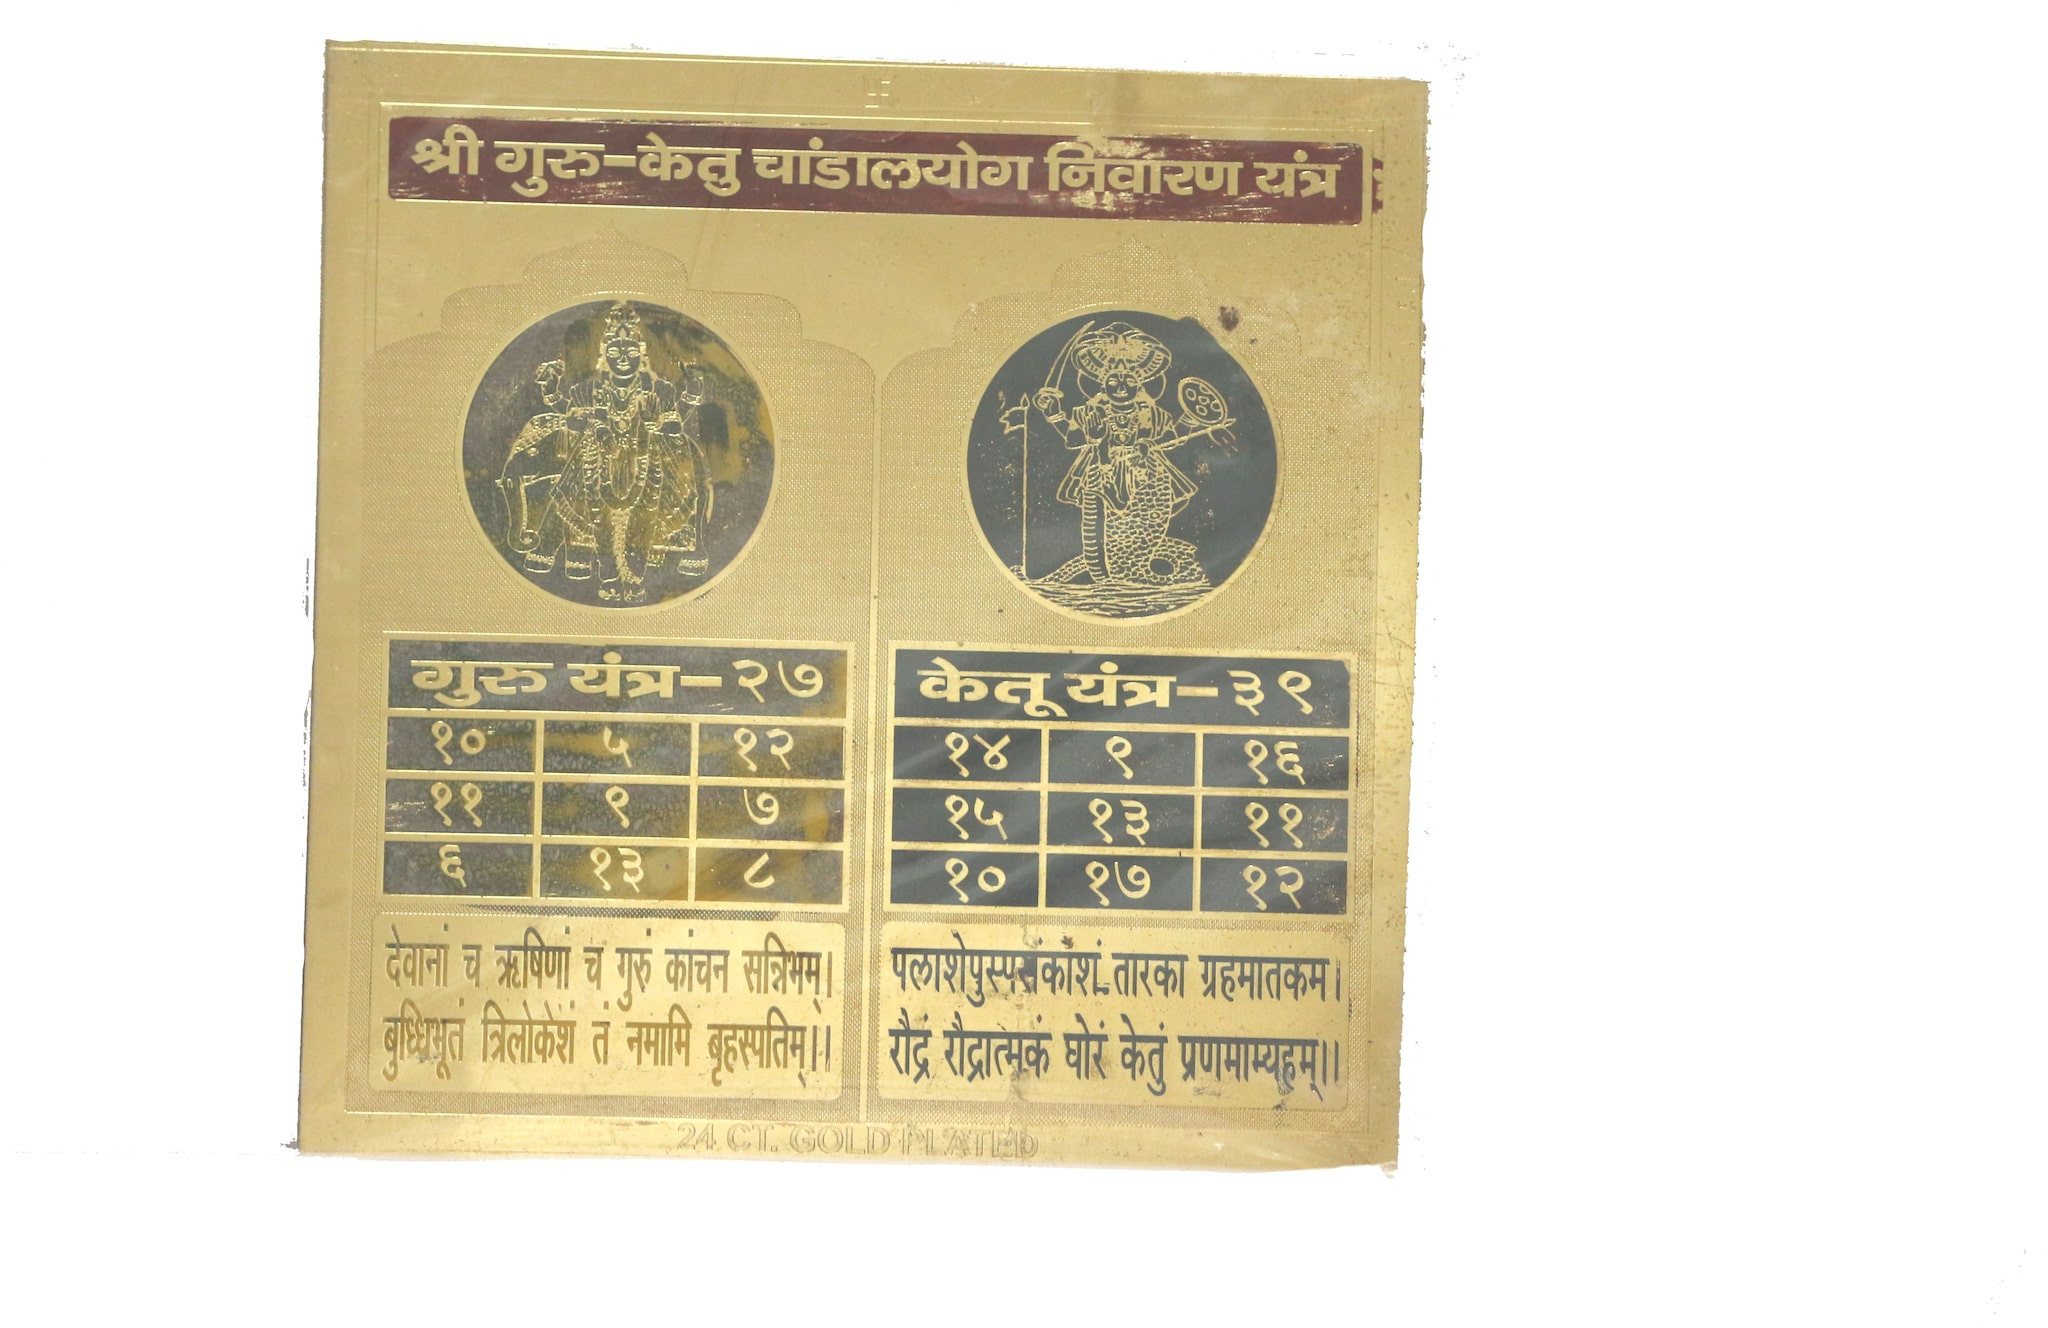 श्री गुरु-केतु चांडालयोग निवारण यंत्र
गुरु यंत्र-२७
१० ५ १२
११ ९ ७
६ १३ ८
देवानां च ऋषिणां च गुरुं कांचन सन्निभम्।
बुध्धिभूतं त्रिलोकेशं तं नमामि बृहस्पतिम्।।
केतू यंत्र-३९
१४ ९ १६
१५ १३ ११
१० १७ १२
पलाशेपुस्पसंकाशं तारका ग्रहमातकम।
रौद्रं रौद्रात्मकं घोरं केतुं प्रणमाम्यहम्।।
24 CT. GOLD PLATED